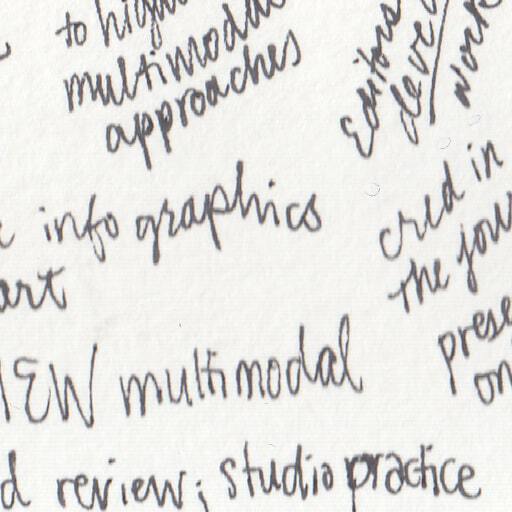 to high
multimodal
approaches
info graphics
art
NEW multimodal
review; studio practice
Editors
deve
work
cred in
the jour
prese
on